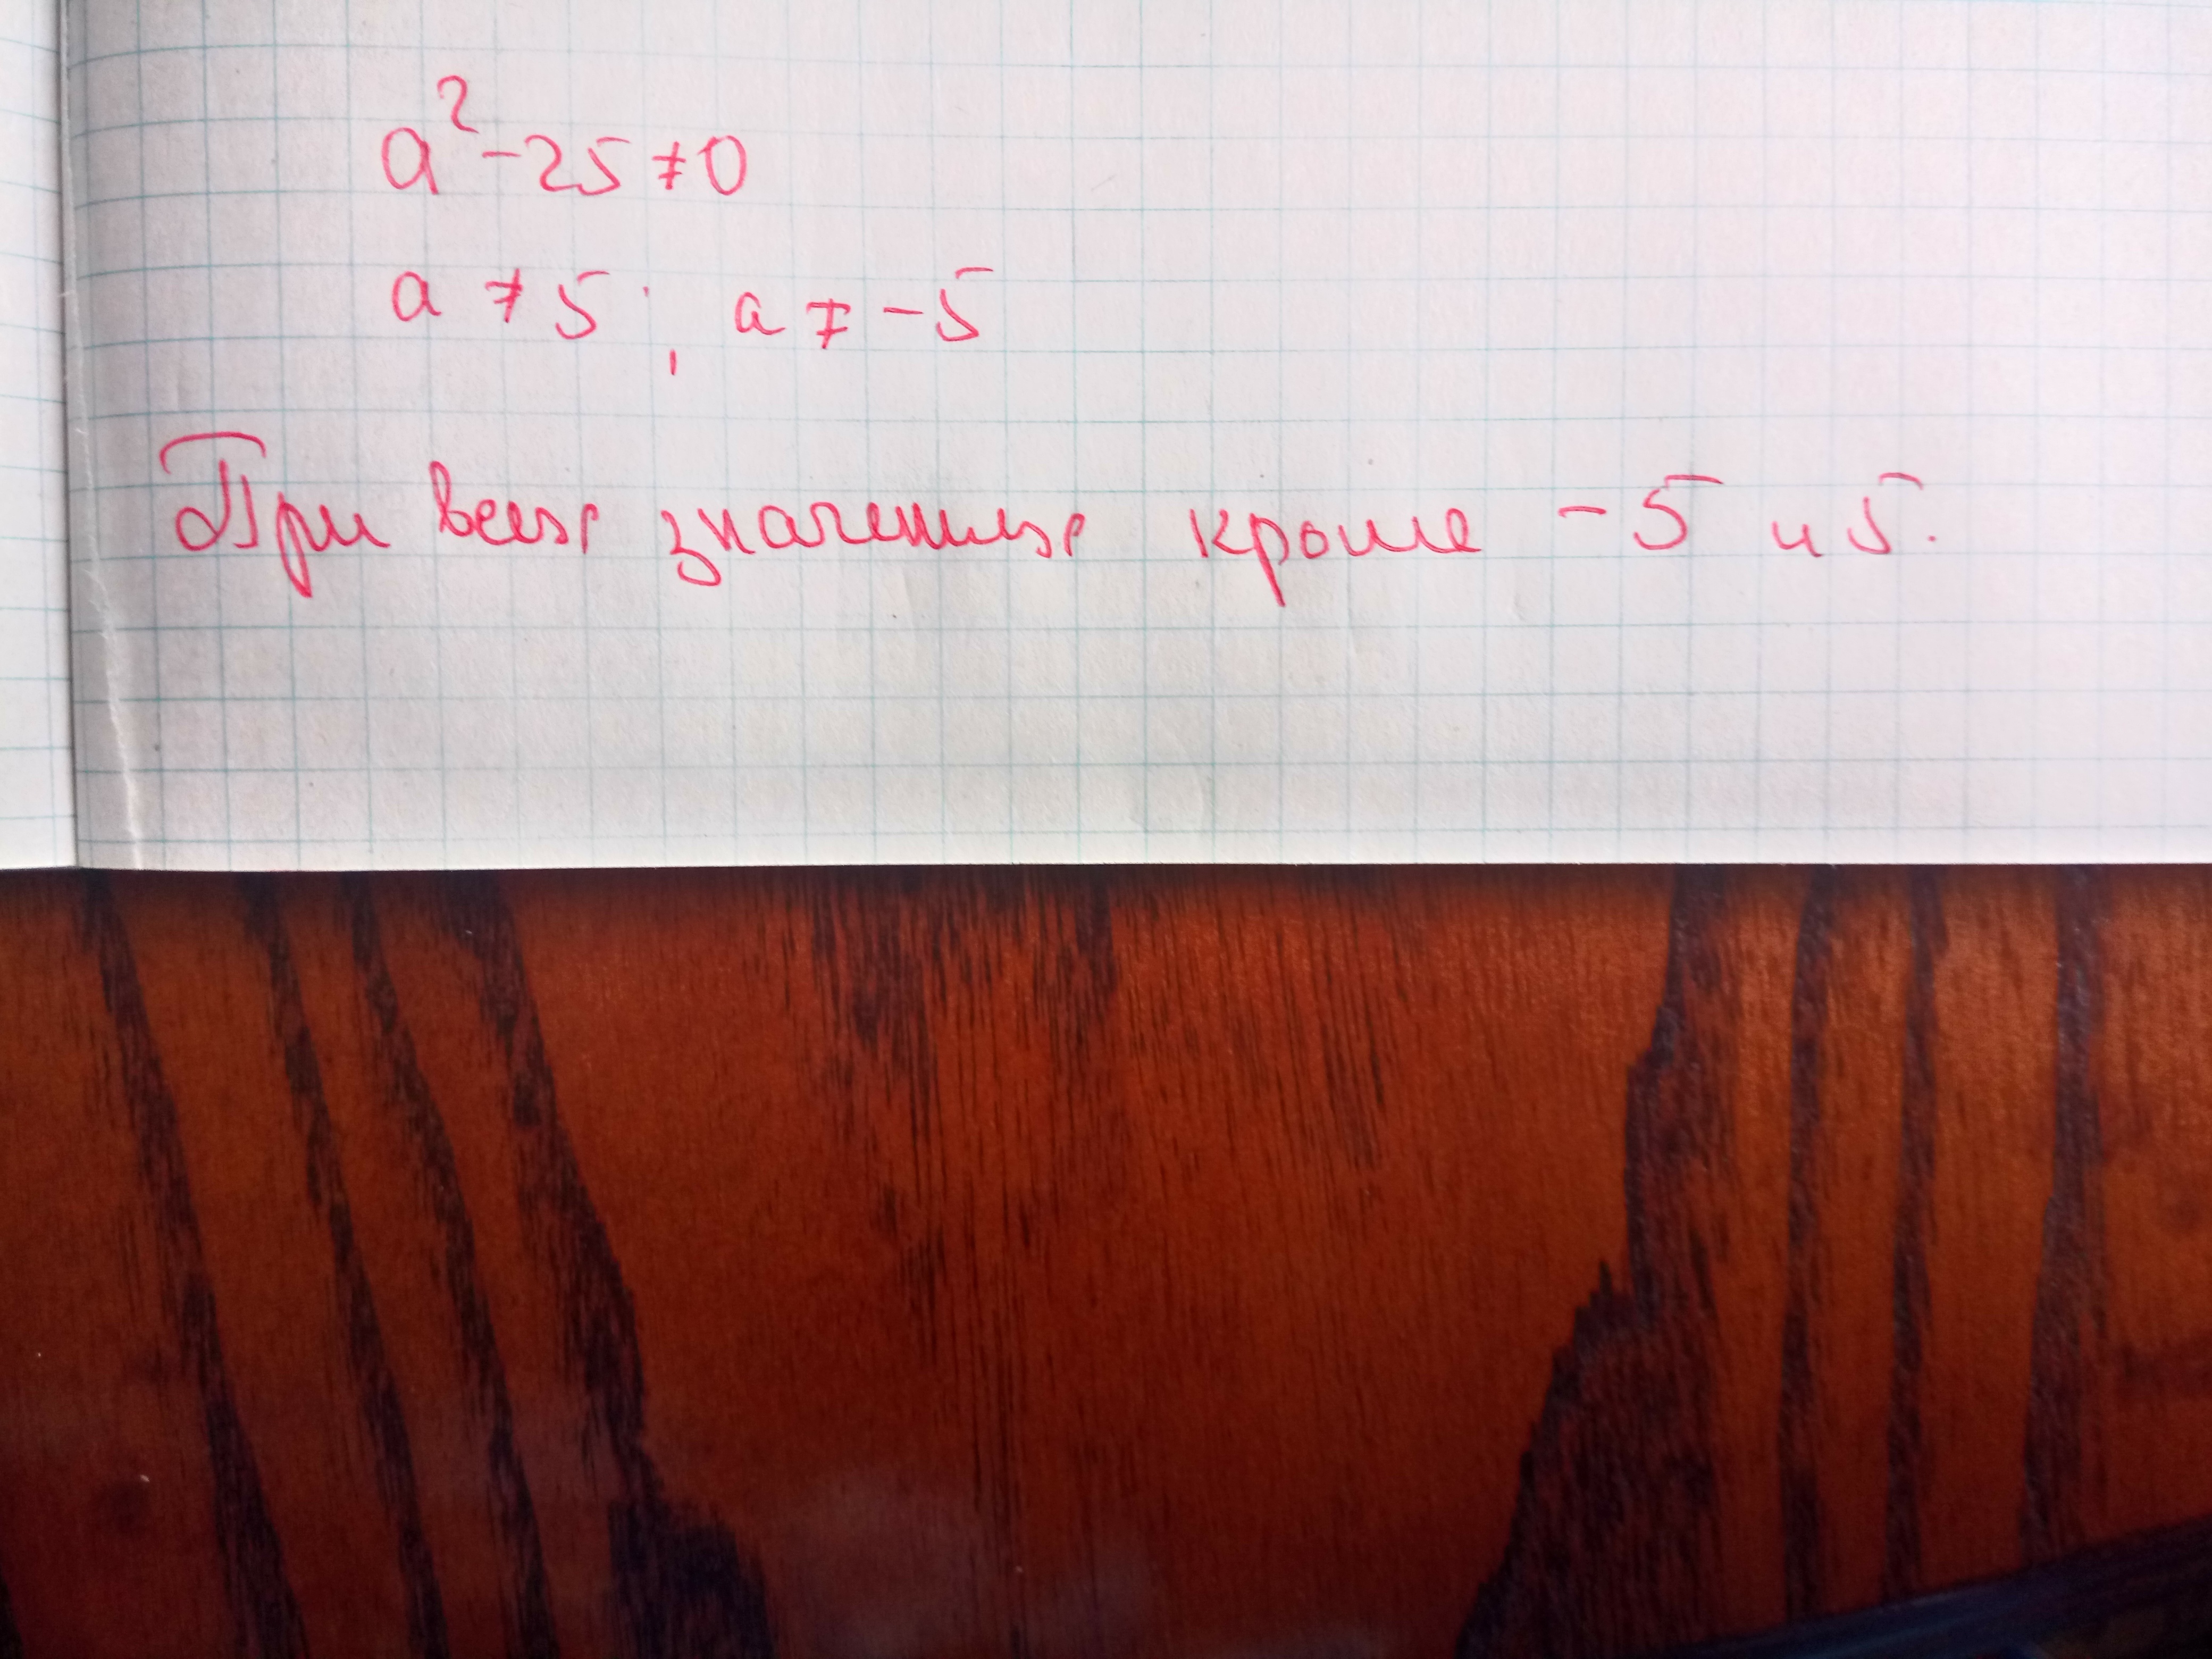 a² - 25 ≠ 0
a ≠ 5 ; a ≠ -5
При всех значениях кроме -5 и 5.